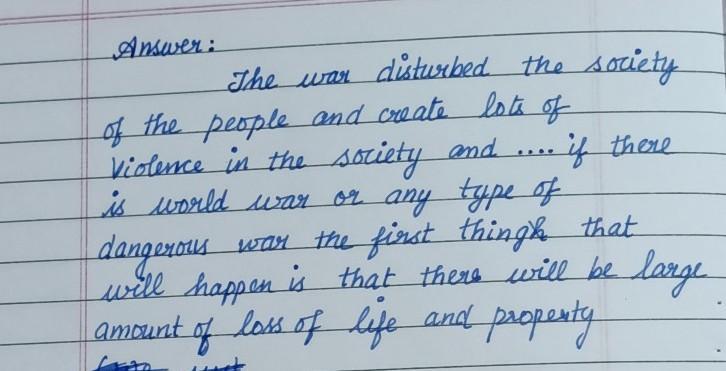 Answer:
The war disturbed the society
of the people and create lots of
violence in the society and .... if there
is world war or any type of
dangerous war the first thing that
will happen is that there will be large
amount of loss of life and property